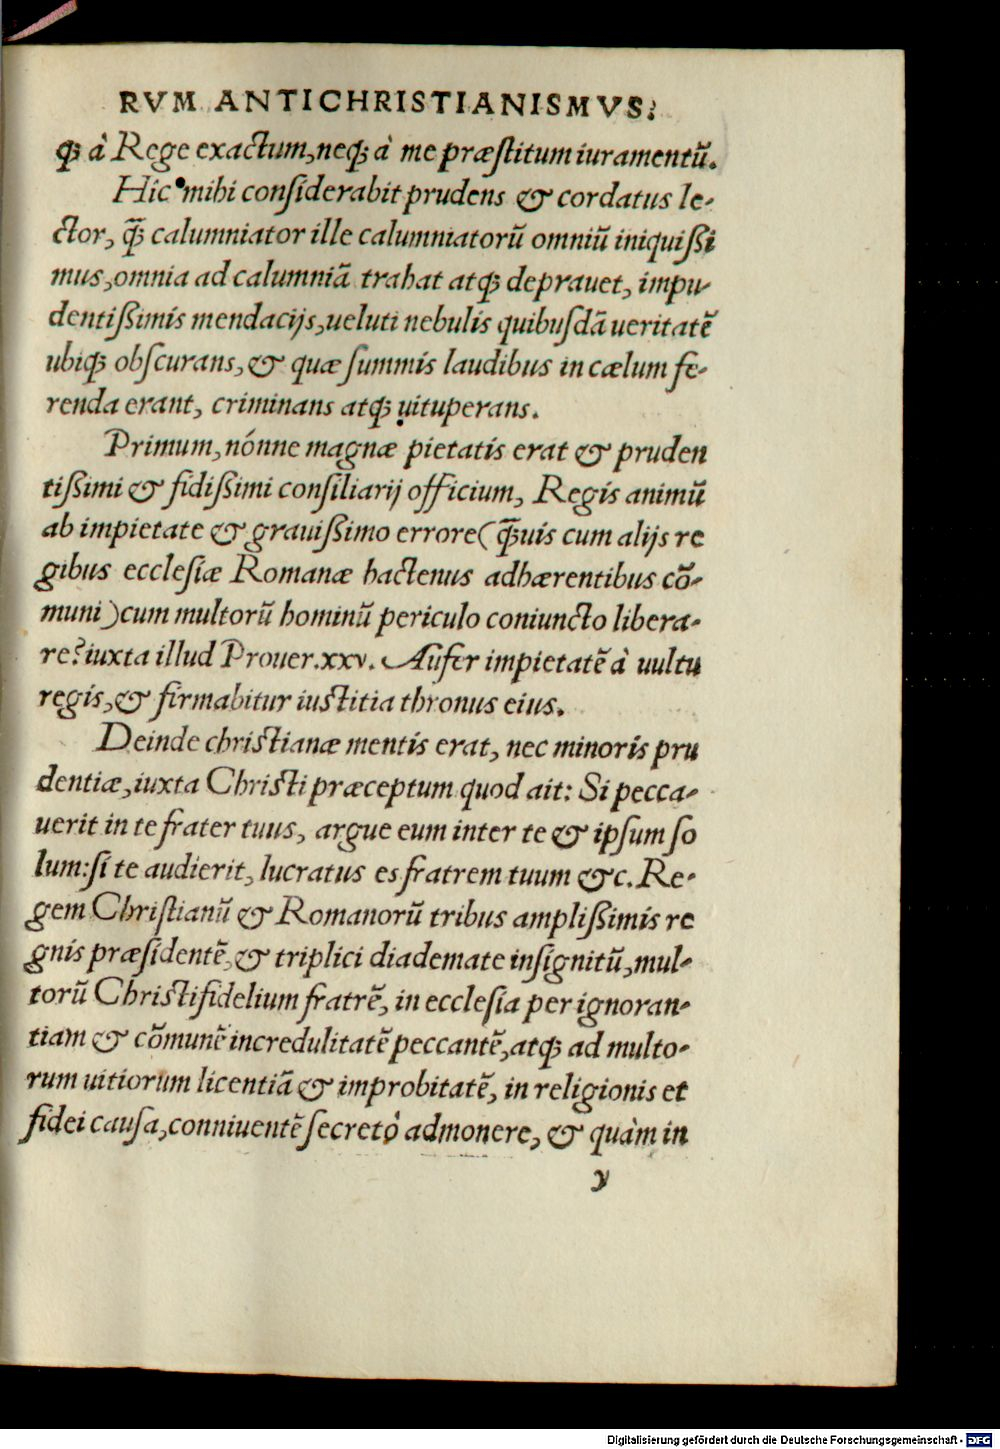 RVM ANTICHRISTIANISMVS.
q; à Rege exactum, neq; à me præstitum iuramentũ.
Hic mihi considerabit prudens & cordatus le-
ctor, q̃; calumniator ille calumniatorũ omniũ iniquißi
mus, omnia ad calumniã trahat atq; deprauet, impu-
dentißimis mendacijs, ueluti nebulis quibusdã ueritatẽ
ubiq; obscurans, & quæ summis laudibus in cælum fe-
renda erant, criminans atq; uituperans.
Primum, nónne magnæ pietatis erat & pruden
tißimi & fidißimi consiliarij officium, Regis animũ
ab impietate & grauißimo errore (q̃;uis cum alijs re
gibus ecclesiæ Romanæ hactenus adhærentibus cõ-
muni) cum multorũ hominũ periculo coniuncto libera-
re? iuxta illud Prouer. xxv. Aufer impietatẽ à uultu
regis, & firmabitur iustitia thronus eius.
Deinde christianæ mentis erat, nec minoris pru
dentiæ, iuxta Christi præceptum quod ait: Si pecca-
uerit in te frater tuus, argue eum inter te & ipsum so
lum: si te audierit, lucratus es fratrem tuum &c. Re-
gem Christianũ & Romanorũ tribus amplißimis re
gnis præsidentẽ, & triplici diademate insignitũ, mul-
torũ Christifidelium fratrẽ, in ecclesia per ignoran-
tiam & cõmunẽ incredulitatẽ peccantẽ, atq; ad multo-
rum uitiorum licentiã & improbitatẽ, in religionis et
fidei causa, conniuentẽ secretò admonere, & quàm in
y
Digitalisierung gefördert durch die Deutsche Forschungsgemeinschaft - DFG